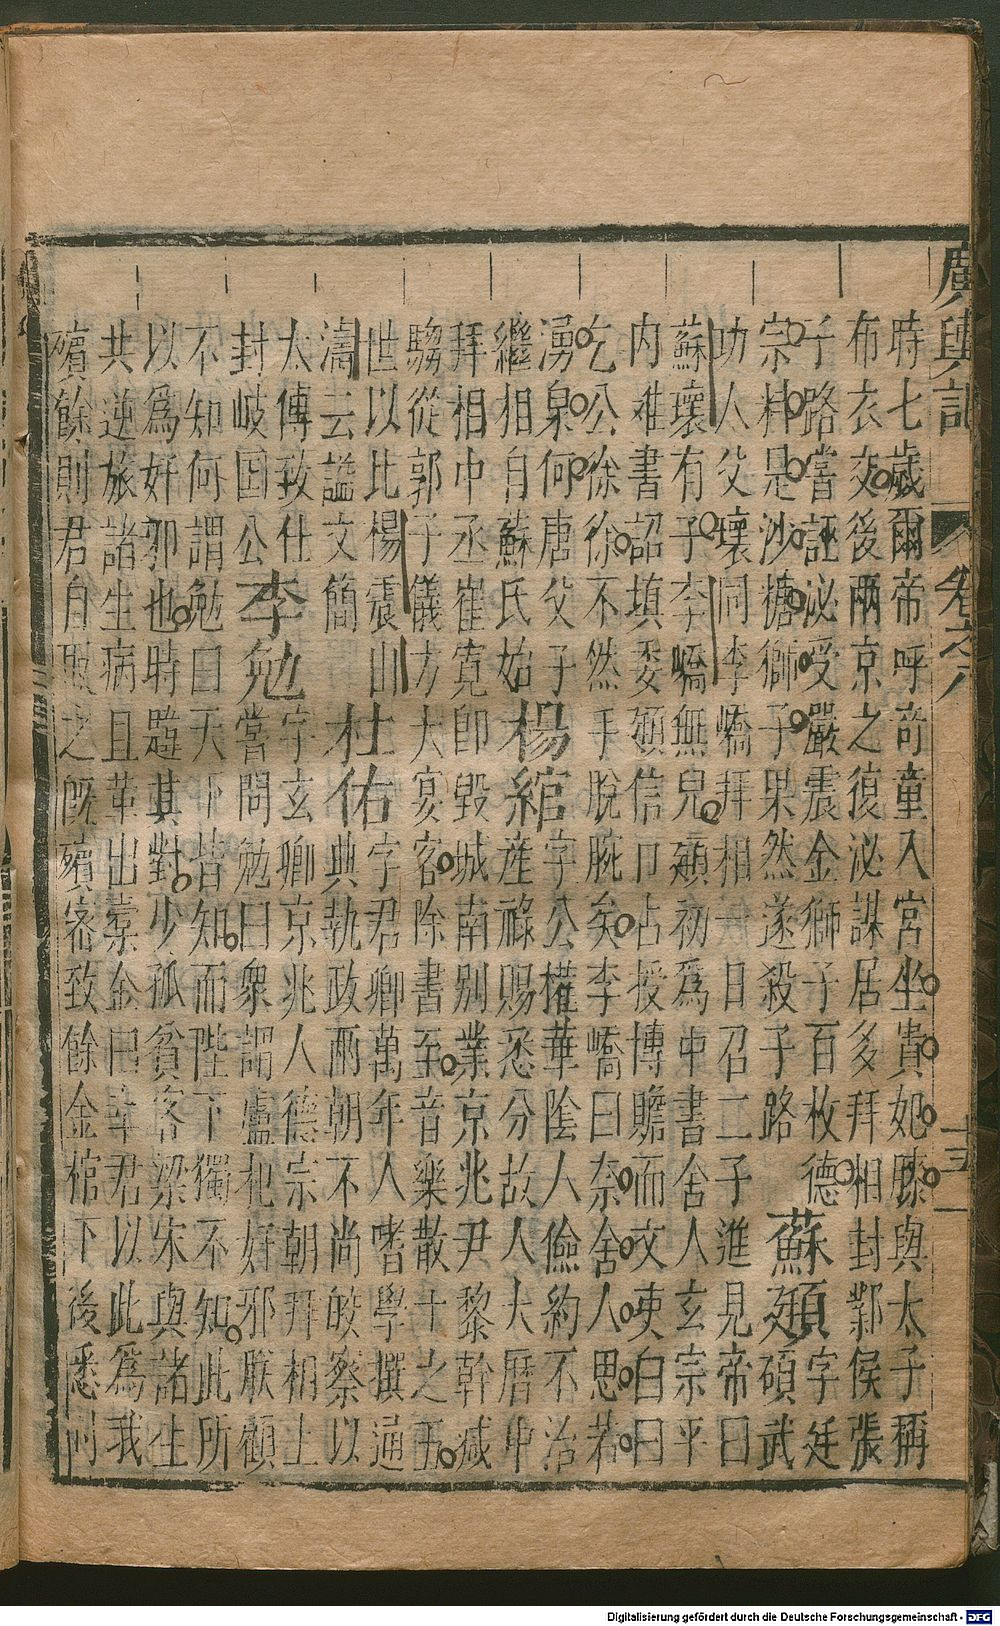 廣輿記
卷之六
十五
時七歲爾帝呼奇童入宮坐貴妃膝與太子稱
布衣交後兩京之復泌謀居多拜相封鄴侯張
子路嘗誣泌受嚴震金獅子百枚德
宗料是沙糖獅子果然遂殺子路蘇頲字廷碩武
功人父壞同李嶠拜相一日召二子進見帝曰
蘇壞有子李嶠無兒頲初為中書舍人玄宗平
內難書詔填委頲信口占授博贍而文吏白曰
乞公徐徐不然手脫腕矣李嶠曰奈舍人思若
湧泉何唐父子
繼相自蘇氏始楊綰字公權華陰人儉約不治
產祿賜悉分故人大曆中
拜相中丞崔寬卽毀城南別業京兆尹黎幹減
騶從郭子儀方大宴客除書至音樂散十之五
世以比楊震山
濤云謚文簡杜佑字君卿萬年人嗜學撰通
典執政兩朝不尚皎察以
太傅致仕
封岐国公李勉字玄卿京兆人德宗朝拜相上
嘗問勉曰眾謂盧杞奸邪朕顧
不知何謂勉曰天下皆知而陛下獨不知此所
以為奸邪也時韙其對少孤貧客梁宋與諸生
共逆旅諸生病且革出橐金曰幸君以此為我
殯餘則君自取之旣殯密致餘金棺下後悉
Digitalisierung gefördert durch die Deutsche Forschungsgemeinschaft - DFG